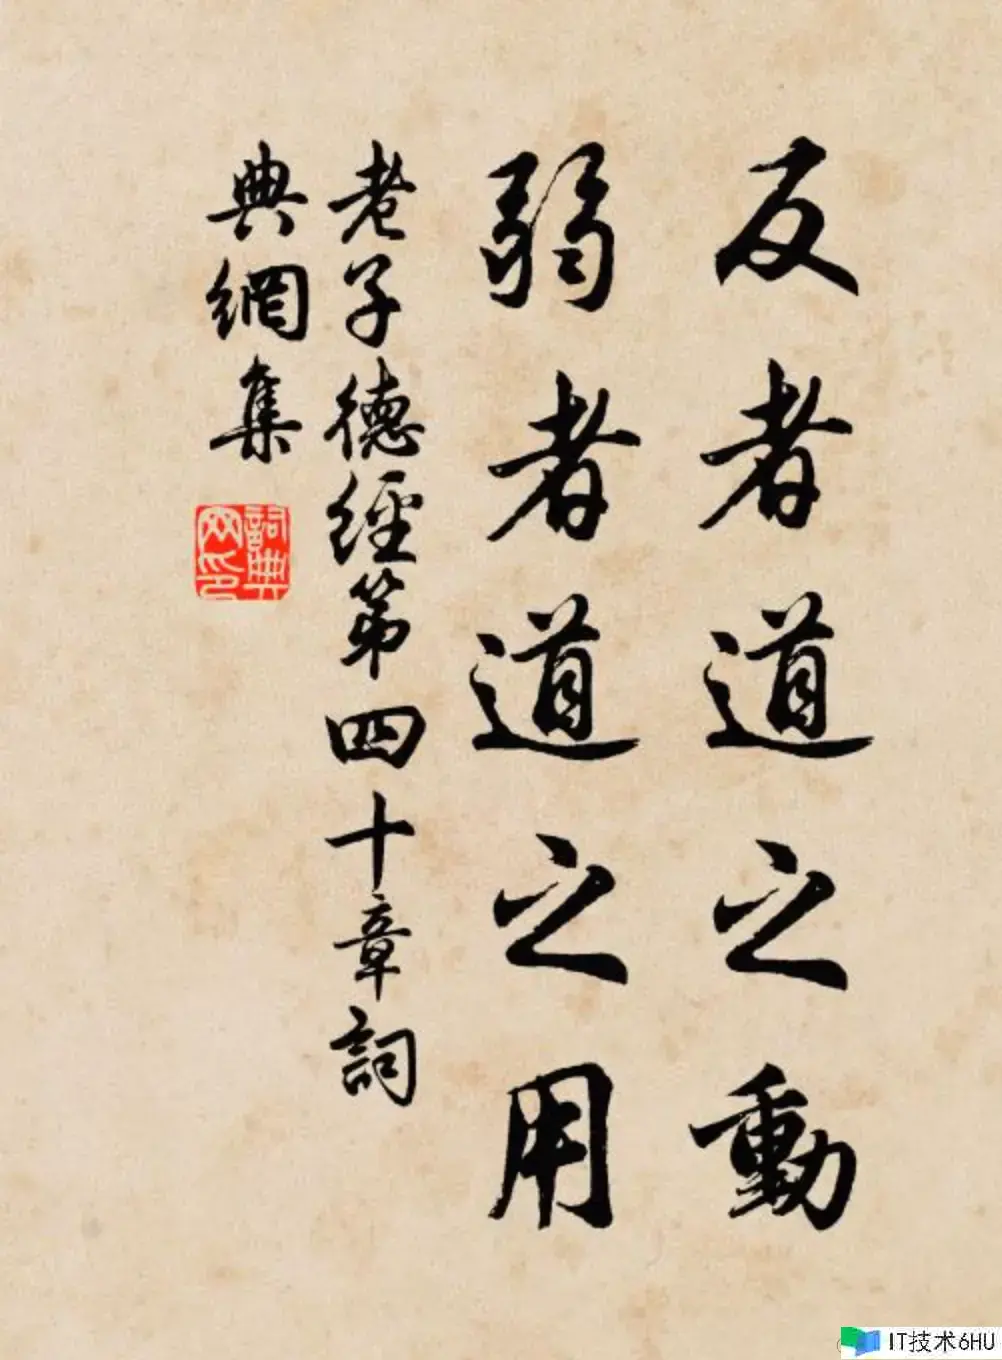 反者道之動
弱者道之用
老子德經第四十章詞
典網集
詞典
网印
IT技术6HU